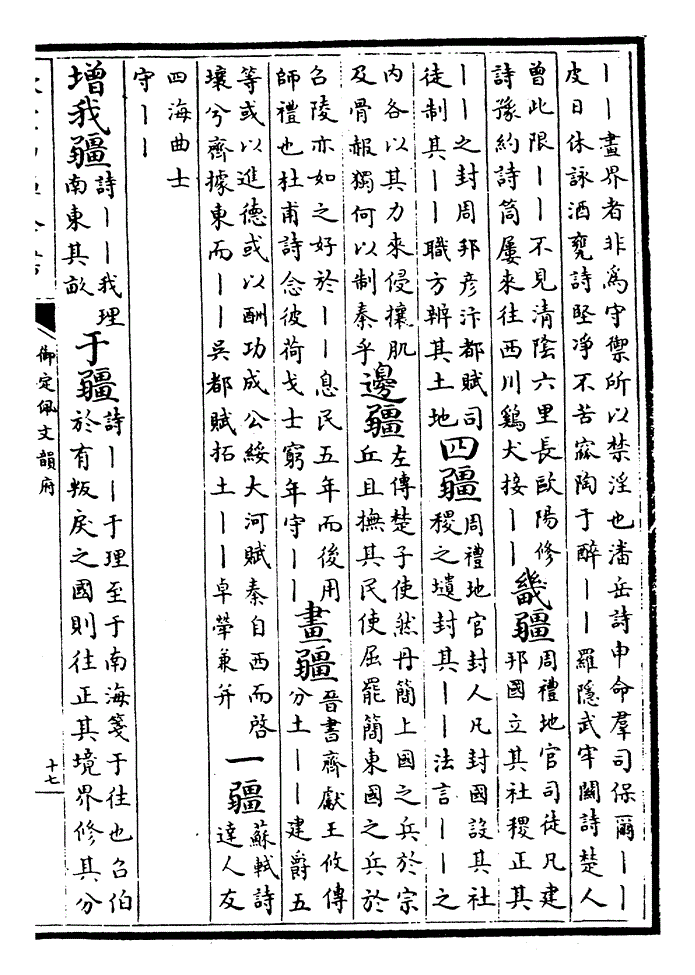 丨丨畫界者非爲守禦所以禁淫也潘岳詩申命羣司保爾丨丨
皮日休詠酒甕詩堅凈不苦窳陶于醉丨丨羅隱武牢關詩楚人
曾此限丨丨不見清陰六里長歐陽修
詩豫約詩筒屢來往西川鷄犬接丨丨
畿疆
周禮地官司徒凡建
邦國立其社稷正其
丨丨之封周邦彥汴都賦司
徒制其丨丨職方辨其土地
四疆
周禮地官封人凡封國設其社
稷之壝封其丨丨法言丨丨之
内各以其力來侵攘肌
及骨赧獨何以制秦乎
邊疆
左傳楚子使然丹簡上國之兵於宗
丘且撫其民使屈罷簡東國之兵於
召陵亦如之好於丨丨息民五年而後用
師禮也杜甫詩念彼荷戈士窮年守丨丨
畫疆
晉書齊獻王攸傳
分土丨丨建爵五
等或以進德或以酬功成公綏大河賦秦自西而啓
壤兮齊據東而丨丨吳都賦拓土丨丨卓犖兼并
一疆
蘇軾詩
達人友
四海曲士
守丨丨
增我疆
詩丨丨我理
南東其畝
于疆
詩丨丨于理至于南海箋于往也召伯
於有叛戾之國則往正其境界修其分
御定佩文韻府
十七